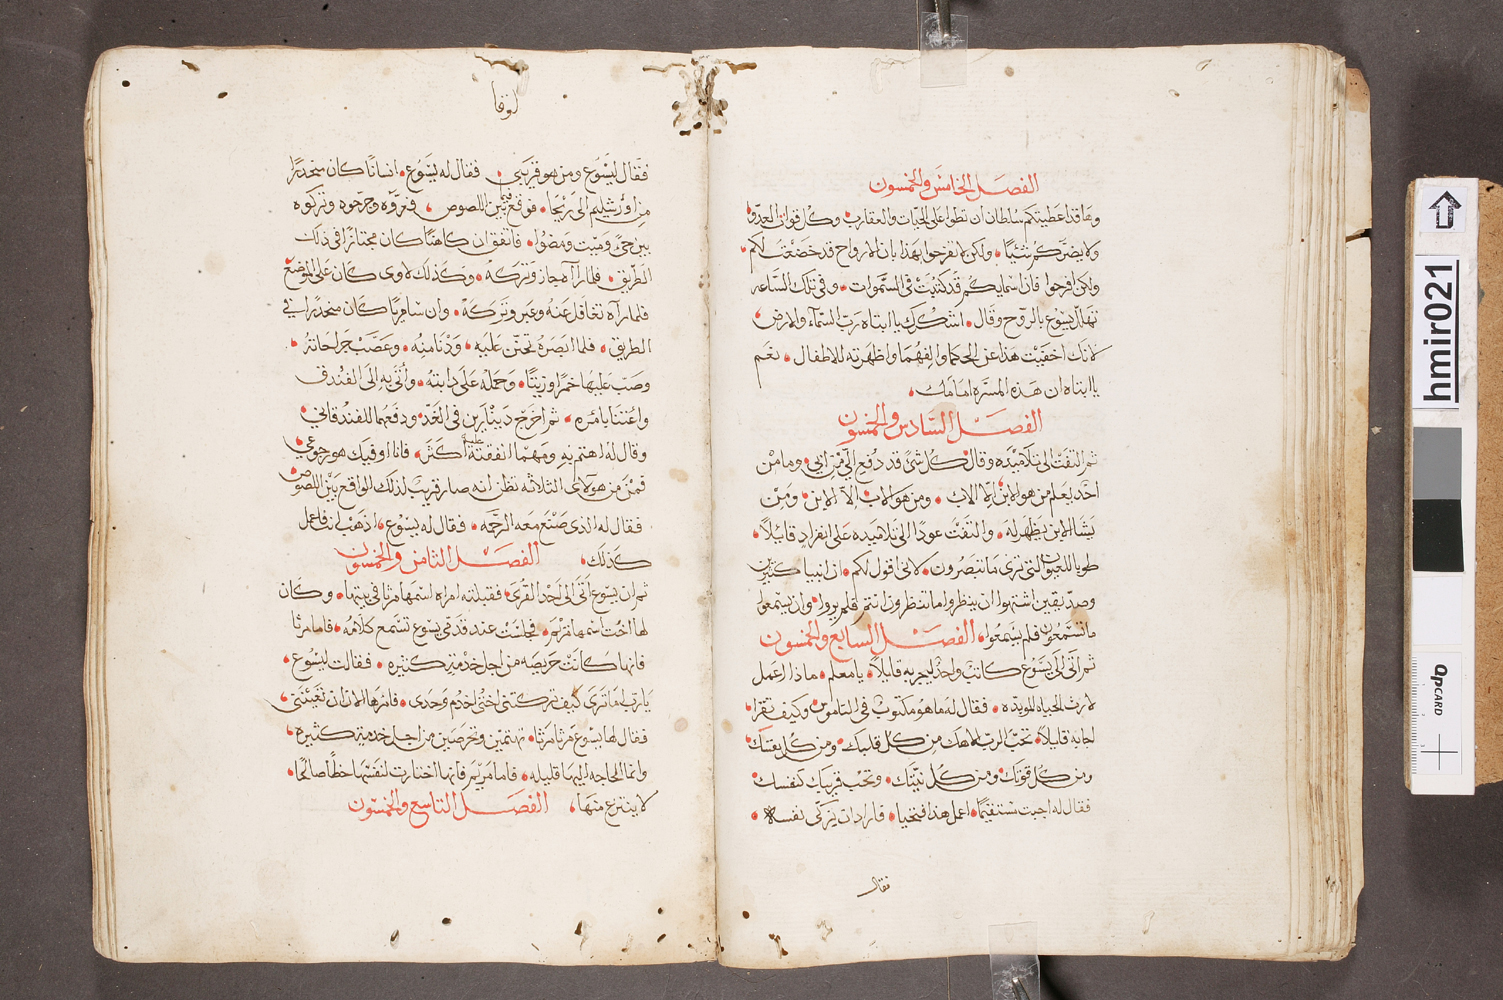 الفصل الخامس والخمسون
وهاقد اعطيتكم سلطان ان تطوا على الحيات والعقارب وكل قوات العدو
ولا يضركم شيًا ولكن لا تفرحوا بهذا بان الارواح قد خضعت لكم
ولكن افرحوا فان اسمايكم قد كتبت في السموات وفي تلك الساعه
تهلل يسوع بالروح وقال اشكرك يا ابتاه رب السمآ والارض
لانك اخفيت هذا عن الحكما والفهما واظهرته للاطفال نعم
يا ابتاه ان هذه المسرة امامك
الفصل السادس والخمسون
ثم التفت الى تلاميذه وقال كل شئ قد دفع الي من ابي وما من
احد يعلم من هو الابن الا الاب ومن هو الاب الا الابن ومن
يشا الابن يظهر له والتفت عودًا الى تلاميذه على انفراد قائلاً
طوبا للعيون التي ترى ما تبصرون لاني اقول لكم ان انبيا كثيرين
وصديقين اشتهوا ان ينظروا ما تنظرون انتم فلم يروا وان يسمعوا
ما تسمعون فلم يسمعوا الفصل السابع والخمسون
ثم اتى الى يسوع كاتب واحد ليجربه قايلاً يا معلم ماذا اعمل
لارث الحياه المويده فقال له ما هو مكتوب في الناموس وكيف تقرا
اجابه قايلاً تحب الرب الاهك من كل قلبك ومن كل نفسك
ومن كل قوتك ومن كل نيتك وتحب قريبك كنفسك
فقال له اجبت مستقيمًا اعمل هذا فتحيا فاراد ان يزكي نفسه
فقال
لوقا
فقال ليسوع ومن هو قريبي فقال له يسوع انسانًا كان منحدرًا
من اورشليم الى ريحا فوقع بين اللصوص فعروه وجرحوه وتركوه
بين حي وميت ومضوا فاتفق ان كاهنًا كان مجتازًا في ذلك
الطريق فلما رآه جاز وتركه وكذلك لاوى كان على الموضع
فلما رآه تغافل عنه وعبر وتركه وان سامريًا كان منحدرًا في
الطريق فلما ابصره تحنن عليه ودنا منه وعصب جراحاته
وصب عليها خمرًا وزيتًا وحمله على دابته وأتى به الى الفندق
واعتنا بامره ثم اخرج دينارين في الغد ودفعهما للفندقاني
وقال له اهتم به ومهما انفقته عليه اكثر فانا اوفيك هو رجوعي
فمن من هولاى الثلاثه تظن انه صار قريب لذلك الواقع بين اللصوص
فقال له الذى صنع معه الرحمه فقال له يسوع اذهب انت فاعمل
كذلك الفصل الثامن والخمسون
ثم ان يسوع أتى الى احد القرى فقبلته امراه اسمها مرثا في بيتها وكان
لها اخت اسمها مريم فجلست عند قدمي يسوع تسمع كلامه فاما مرثا
فانها كانت حريصه من اجل خدمة كثيره فقالت ليسوع
يا رب اما ترى كيف تركتني اختي اخدم وحدى فامرها الان ان تعينني
فقال لها يسوع مرثا مرثا تهتمين وتحرصين من اجل خدمة كثيره
وانما الحاجه اليها قليله فاما مريم فانها اختارت لنفسها حظًا صالحًا
لا ينتزع منها الفصل التاسع والخمسون
hmir021
dpp CARD